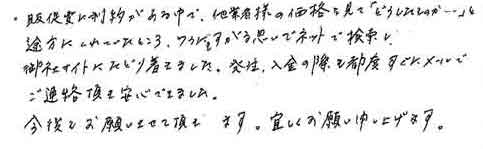 ・販促費に制約がある中で、他業者様の価格を見て「どうしたものか…」と
途方にくれていたところ、ワラにもすがる思いでネットで検索し、
御社サイトにたどり着きました。発注、入金の際も都度すぐにメールで
ご連絡頂き安心できました。
今後もお願いさせて頂きます。宜しくお願い申し上げます。